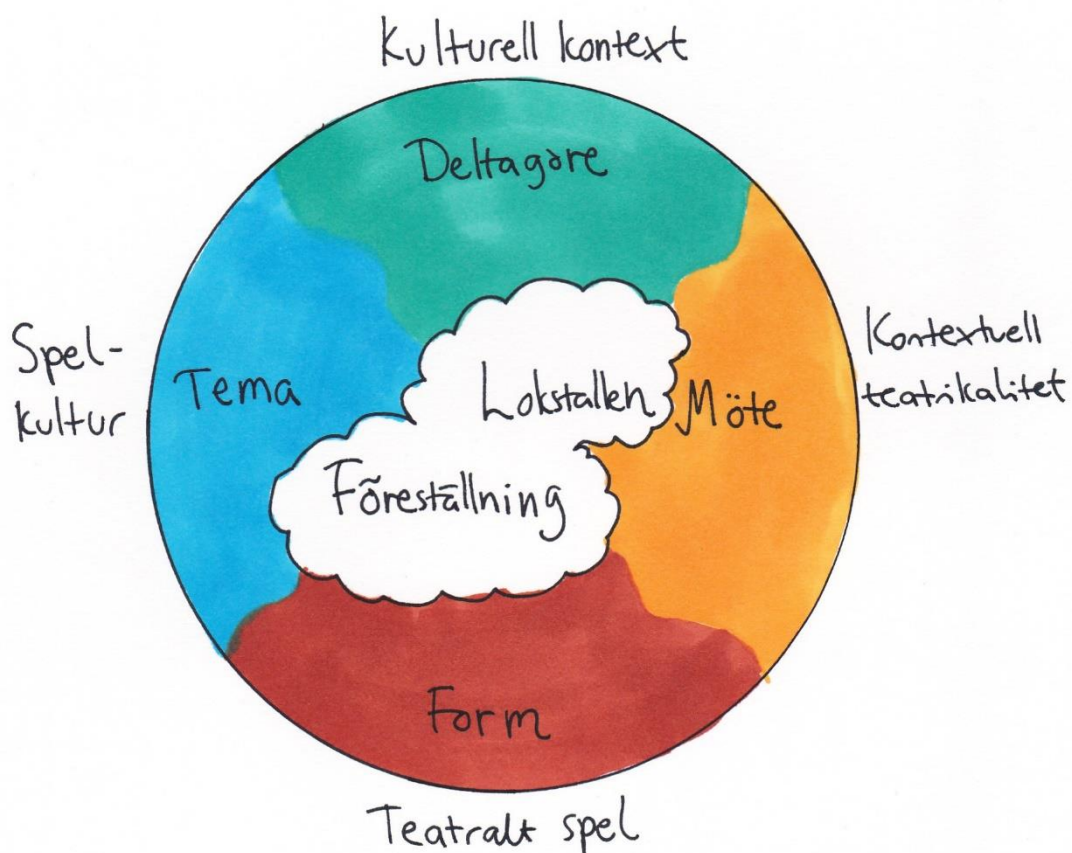 Kulturell kontext
Deltagare
Spel-
kultur
Tema
Lokstallen
Möte
Kontextuell
teatrikalitet
Föreställning
Form
Teatralt spel